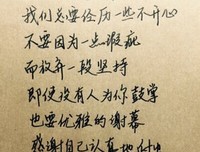 我们总要经历一些不开心
不要因为一点瑕疵
而放弃一段坚持
即便没有人为你鼓掌
也要优雅的谢幕
感谢自己认真地付出